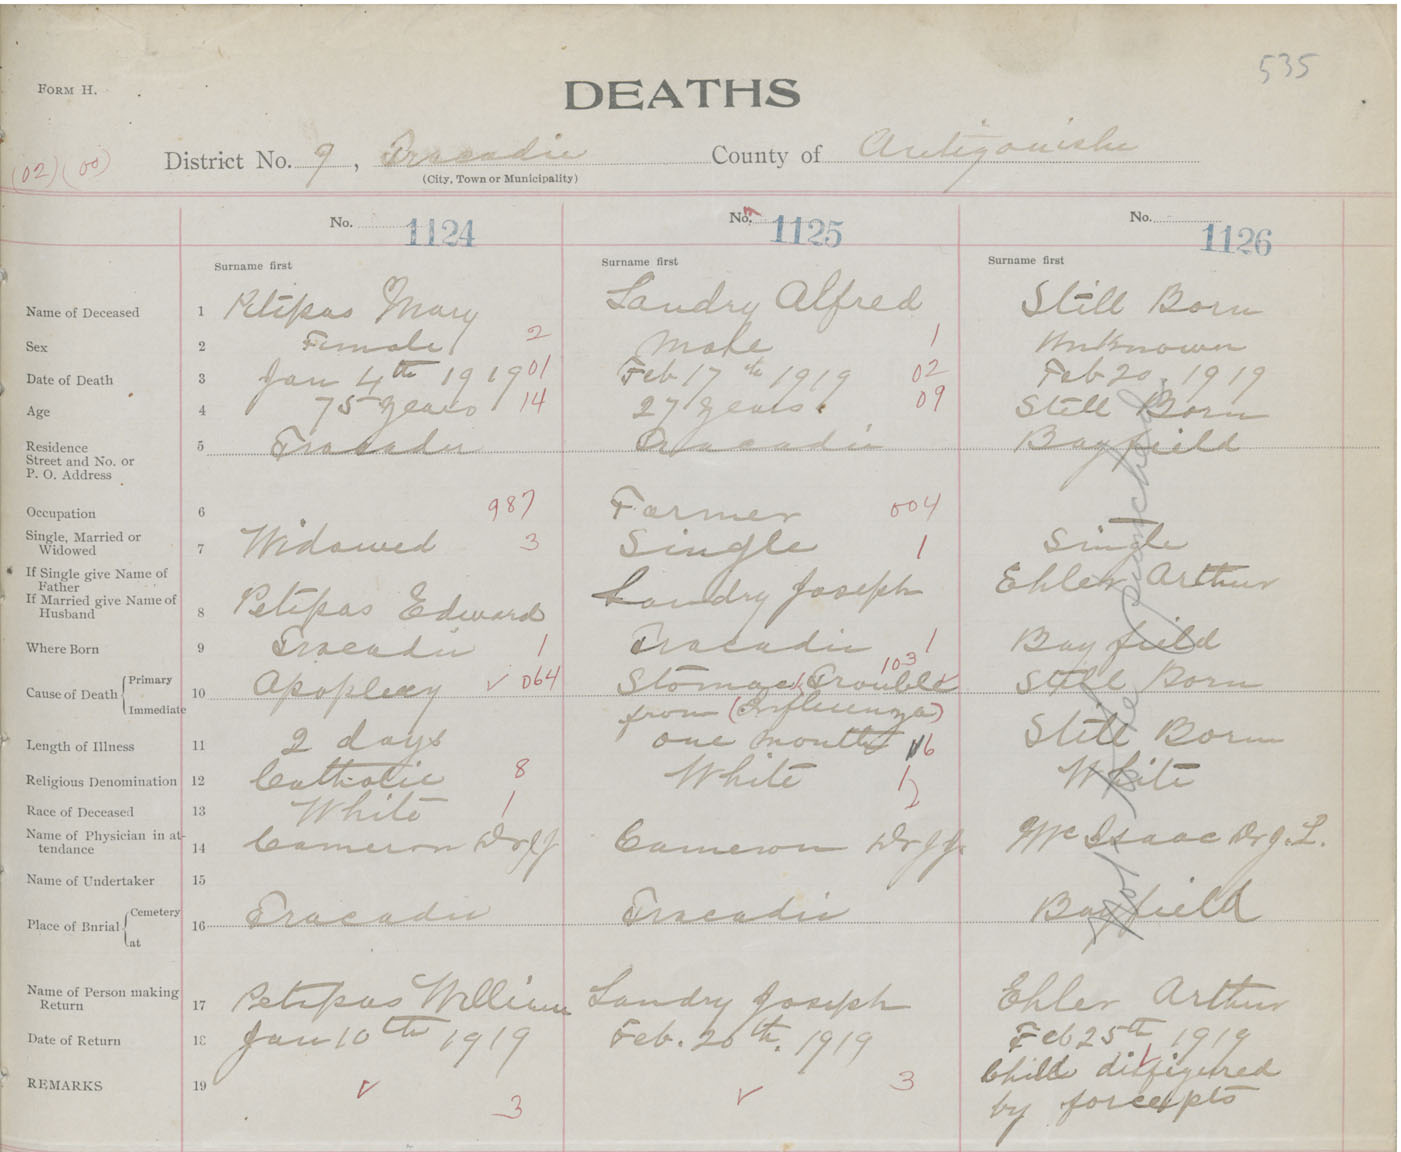 535
FORM H.
DEATHS
(02) (00)
District No. 9, Tracadie County of Antigonishe
(City, Town or Municipality)
No. 1124 No. 1125 No. 1126
Surname first Surname first Surname first
Name of Deceased 1 Petipas Mary Landry Alfred Still Born
Sex 2 Female 2 Male 1 Unknown
Date of Death 3 Jan 4th 1919 01 Feb 17th 1919 02 Feb 20, 1919
Age 4 75 years 14 27 years. 09 Still Born
Residence 5 Tracadie Tracadie Bayfield
Street and No. or
P. O. Address
Occupation 6 987 Farmer 004
Single, Married or
Widowed 7 Widowed 3 Single 1 Single
If Single give Name of
Father
If Married give Name of
Husband 8 Petipas Edward Landry Joseph Ehler Arthur
Where Born 9 Tracadie 1 Tracadie 1 Bayfield
Cause of Death Primary 10 Apoplexy 064 Stomach Trouble 103 Still Born
Immediate from (Influenza)
Length of Illness 11 2 days one month 16 Still Born
Religious Denomination 12 Catholic 8 White 1 White
Race of Deceased 13 White 1 2
Name of Physician in at-
tendance 14 Cameron Dr J J Cameron Dr J J. McIsaac Dr J. L.
Name of Undertaker 15
Place of Burial Cemetery 16 Tracadie Tracadie Bayfield
at
Name of Person making
Return 17 Petipas William Landry Joseph Ehler Arthur
Date of Return 18 Jan 10th 1919 Feb. 20th. 1919 Feb 25th 1919
REMARKS 19 3 3 Child disfigured
by forceps
Not to be punched